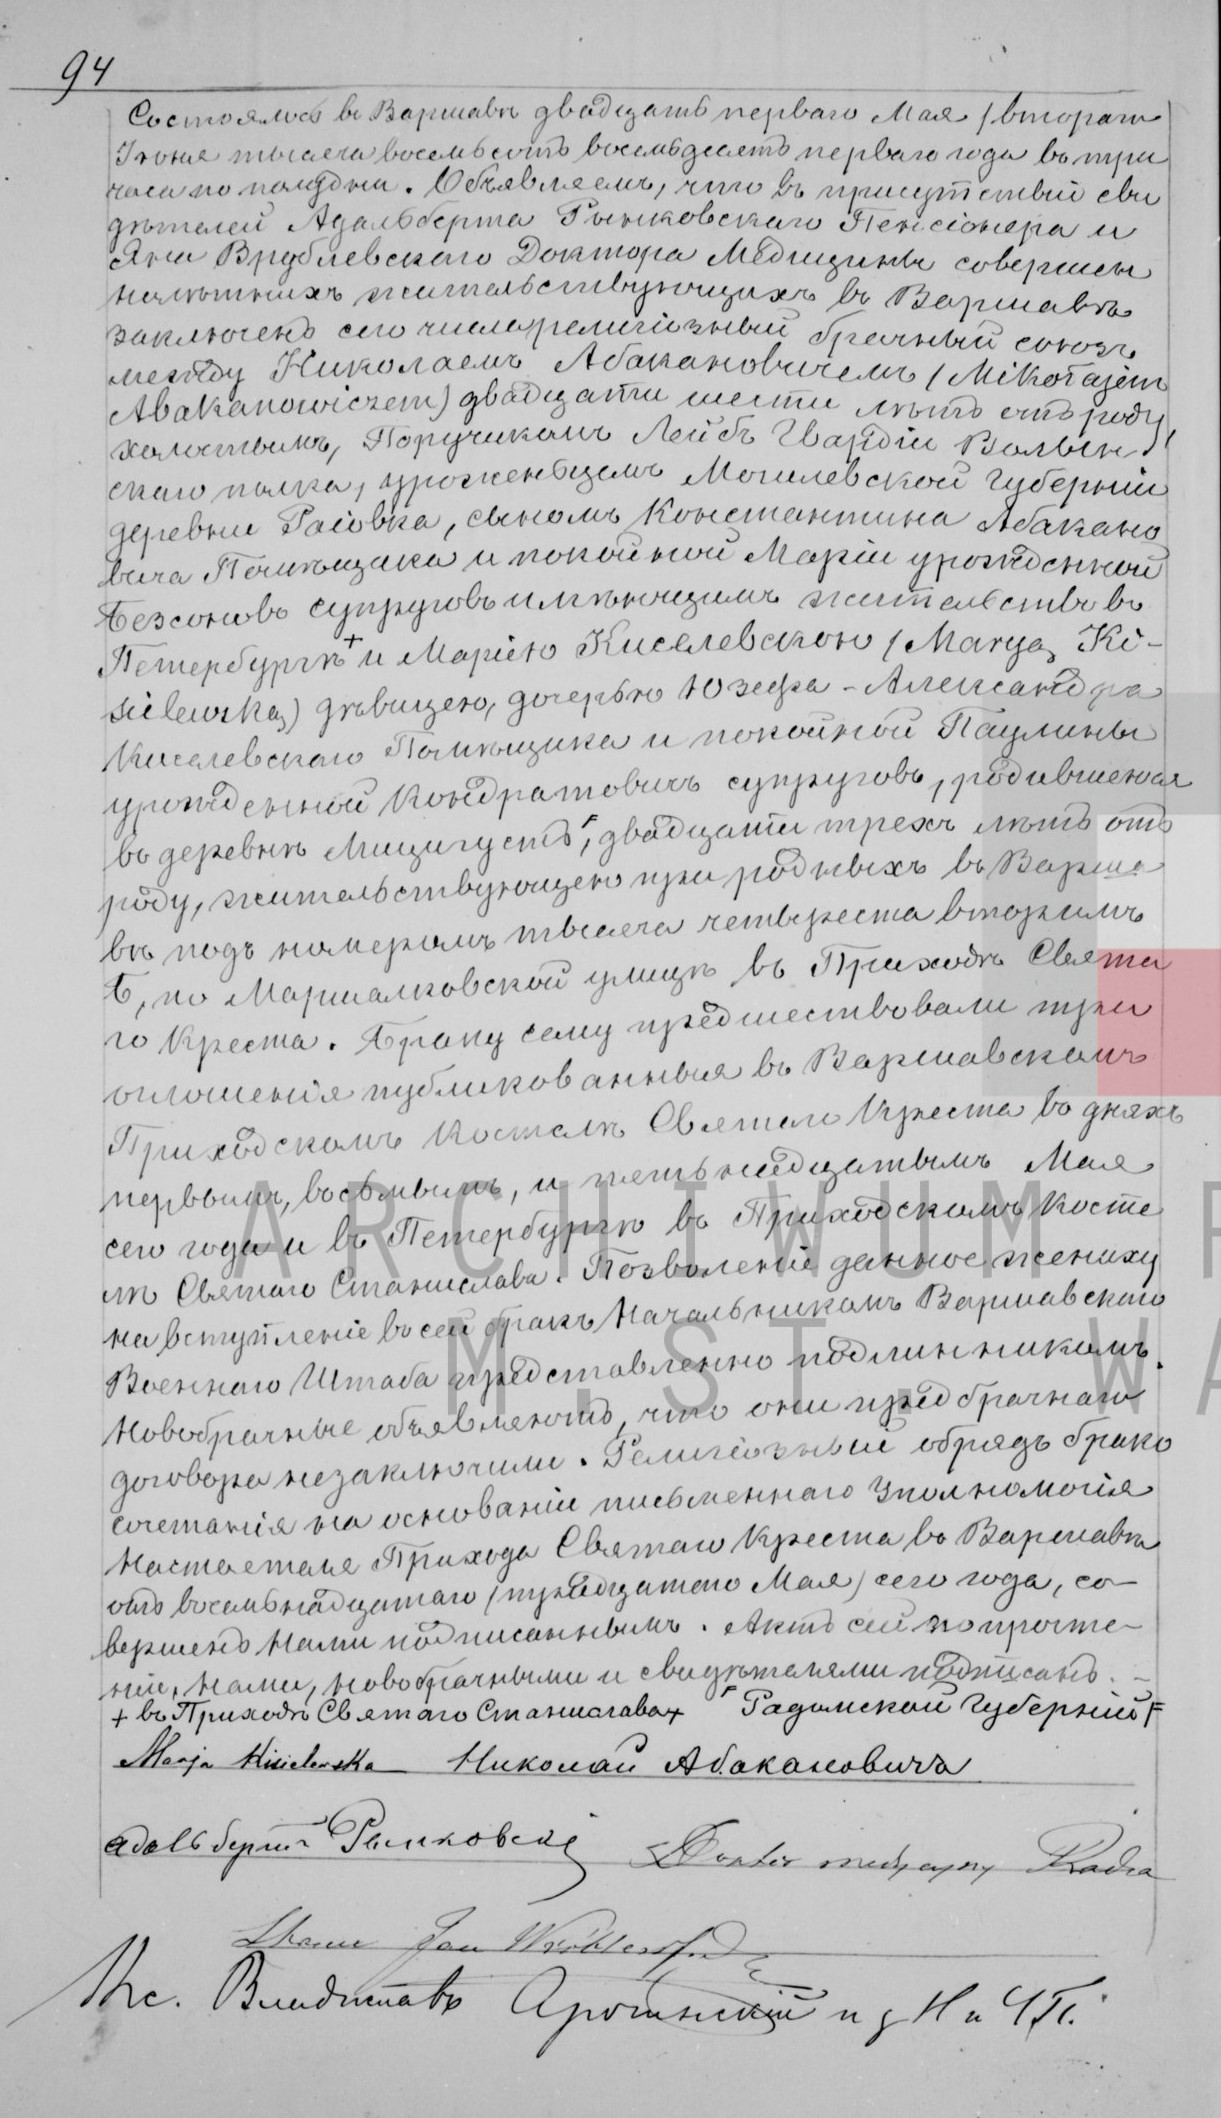 94
Состоялось въ Варшавѣ двадцать перваго Мая /втораго
Іюня тысяча восемьсотъ восемьдесятъ перваго года въ три
часа по полудни. Объявляемъ, что въ присутствіи сви
дѣтелей Адальберта Рынковскаго Пенсіонера и
Яна Врублевскаго Доктора Медицины совершен
нолѣтнихъ жительствующихъ въ Варшавѣ
заключенъ сего числа религіозный брачный союзъ
между Николаемъ Абакановичемъ /Mikołajem
Abakanowiczem) двадцати шести лѣтъ отъ роду,
холостымъ, Поручикомъ Лейбъ Гвардіи Волын
скаго полка, уроженцемъ Могилевской Губерніи
деревни Расовка, сыномъ Константина Абакано
вича Помѣщика и покойной Маріи урожденной
Безсоновъ супруговъ имѣющимъ жительство въ
Петербургѣ + и Маріею Киселевскою /Maryą Ki-
sielewską) дѣвицею, дочерью Юзефа - Александра
Киселевскаго Помѣщика и покойной Паулины
урожденной Кондратовичъ супруговъ, родившеюся
въ деревнѣ двадцати трехъ лѣтъ отъ
роду, жительствующею при родныхъ въ Варша
вѣ подъ номеромъ тысяча четыреста вторымъ
Б, по Маршалковской улицѣ въ Приходѣ Свята
го Креста. Браку сему предшествовали три
оглошенія публикованныя въ Варшавскомъ
Приходскомъ Костелѣ Святаго Креста въ дняхъ
первымъ, восьмымъ, и пятьнадцатымъ Мая
сего года и въ Петербургѣ въ Приходскомъ Косте
лѣ Святаго Станислава. Позволеніе данное жениху
на вступленіе въ сей бракъ Начальникомъ Варшавскаго
Военнаго Штаба представленно подлинникомъ.
Новобрачные объявляютъ, что они предбрачнаго
договора незаключили. Религіозный обрядъ брако
сочетанія на основаніи письменнаго уполномочія
Настоятеля Прихода Святаго Креста въ Варшавѣ
отъ восемьнадцатаго /тридцатаго Мая) сего года, со-
вершенъ Нами подписаннымъ. Актъ сей по прочте-
ніи, Нами, новобрачными и свидѣтелями подписанъ. -
+ въ Приходѣ Святаго Станислава + Радомской Губерніи
Marja Kisielewska Николай Абакановичъ
Адальбертъ Рынковскій Doktor medycyny Radca
Stanu Jan Wróblewski
Кс. Владиславъ
ARCHIWUM P
M. ST. WA